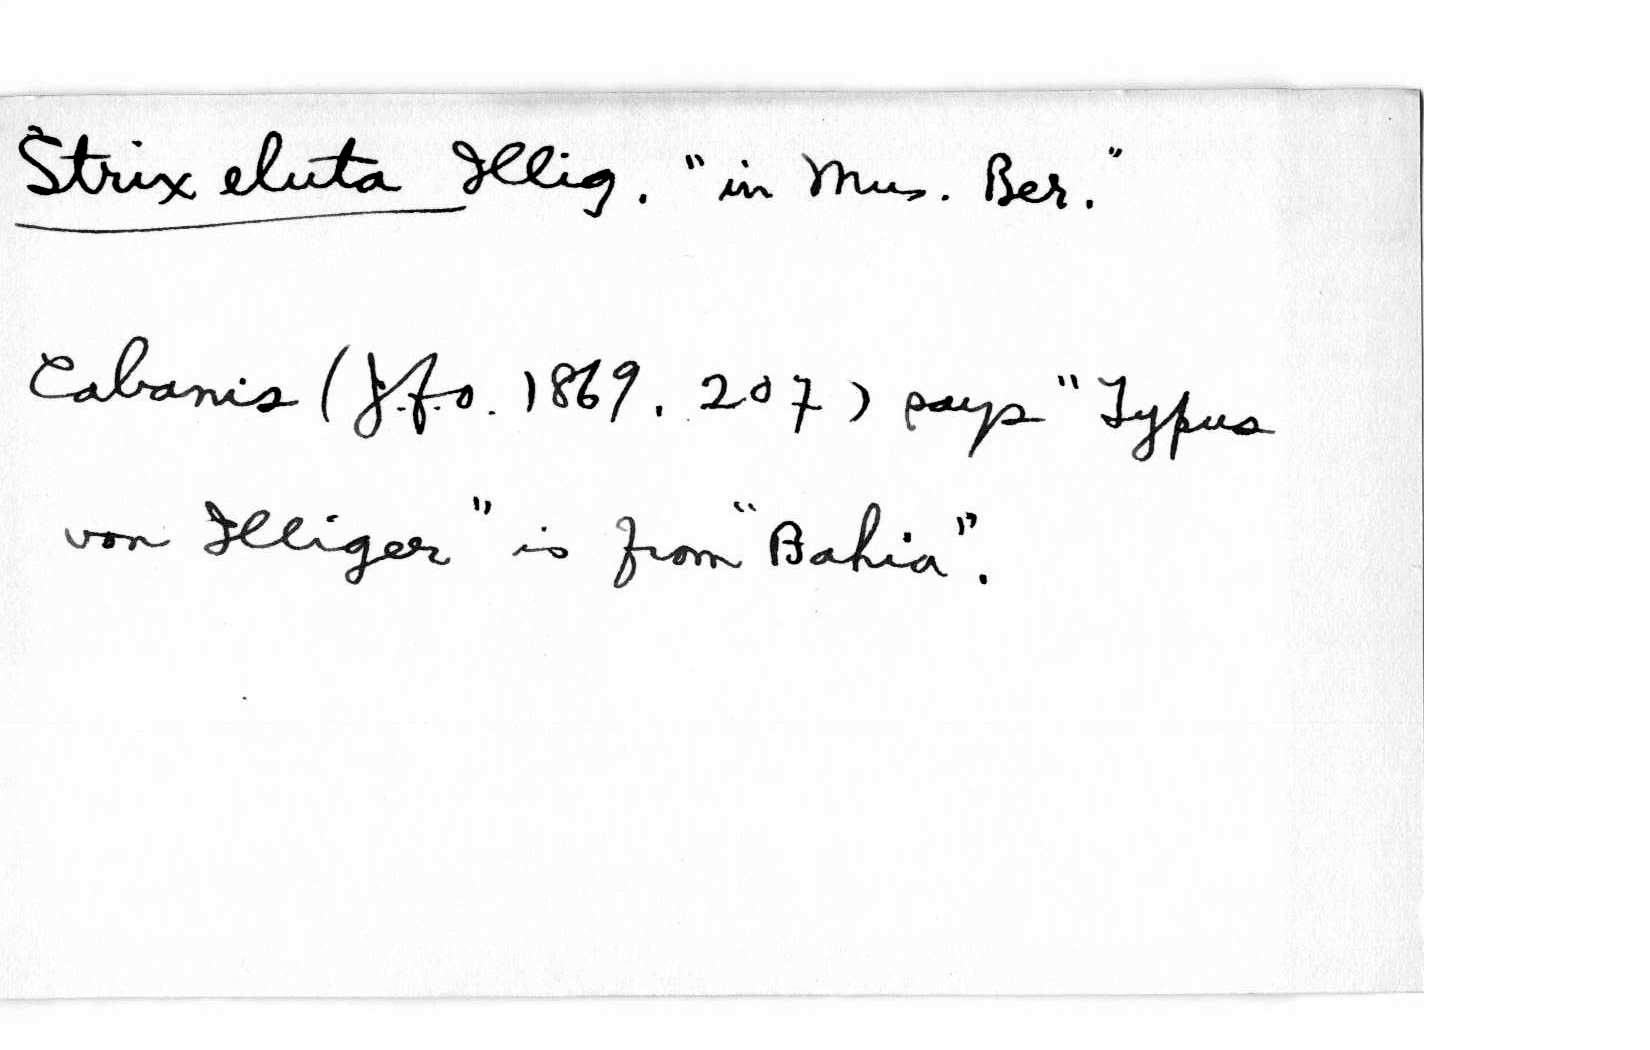 Strix eluta Illig. "in Mus. Ber."
Cabanis (J.f.o. 1869. 207) says "Typus
von Illiger" is from "Bahia".